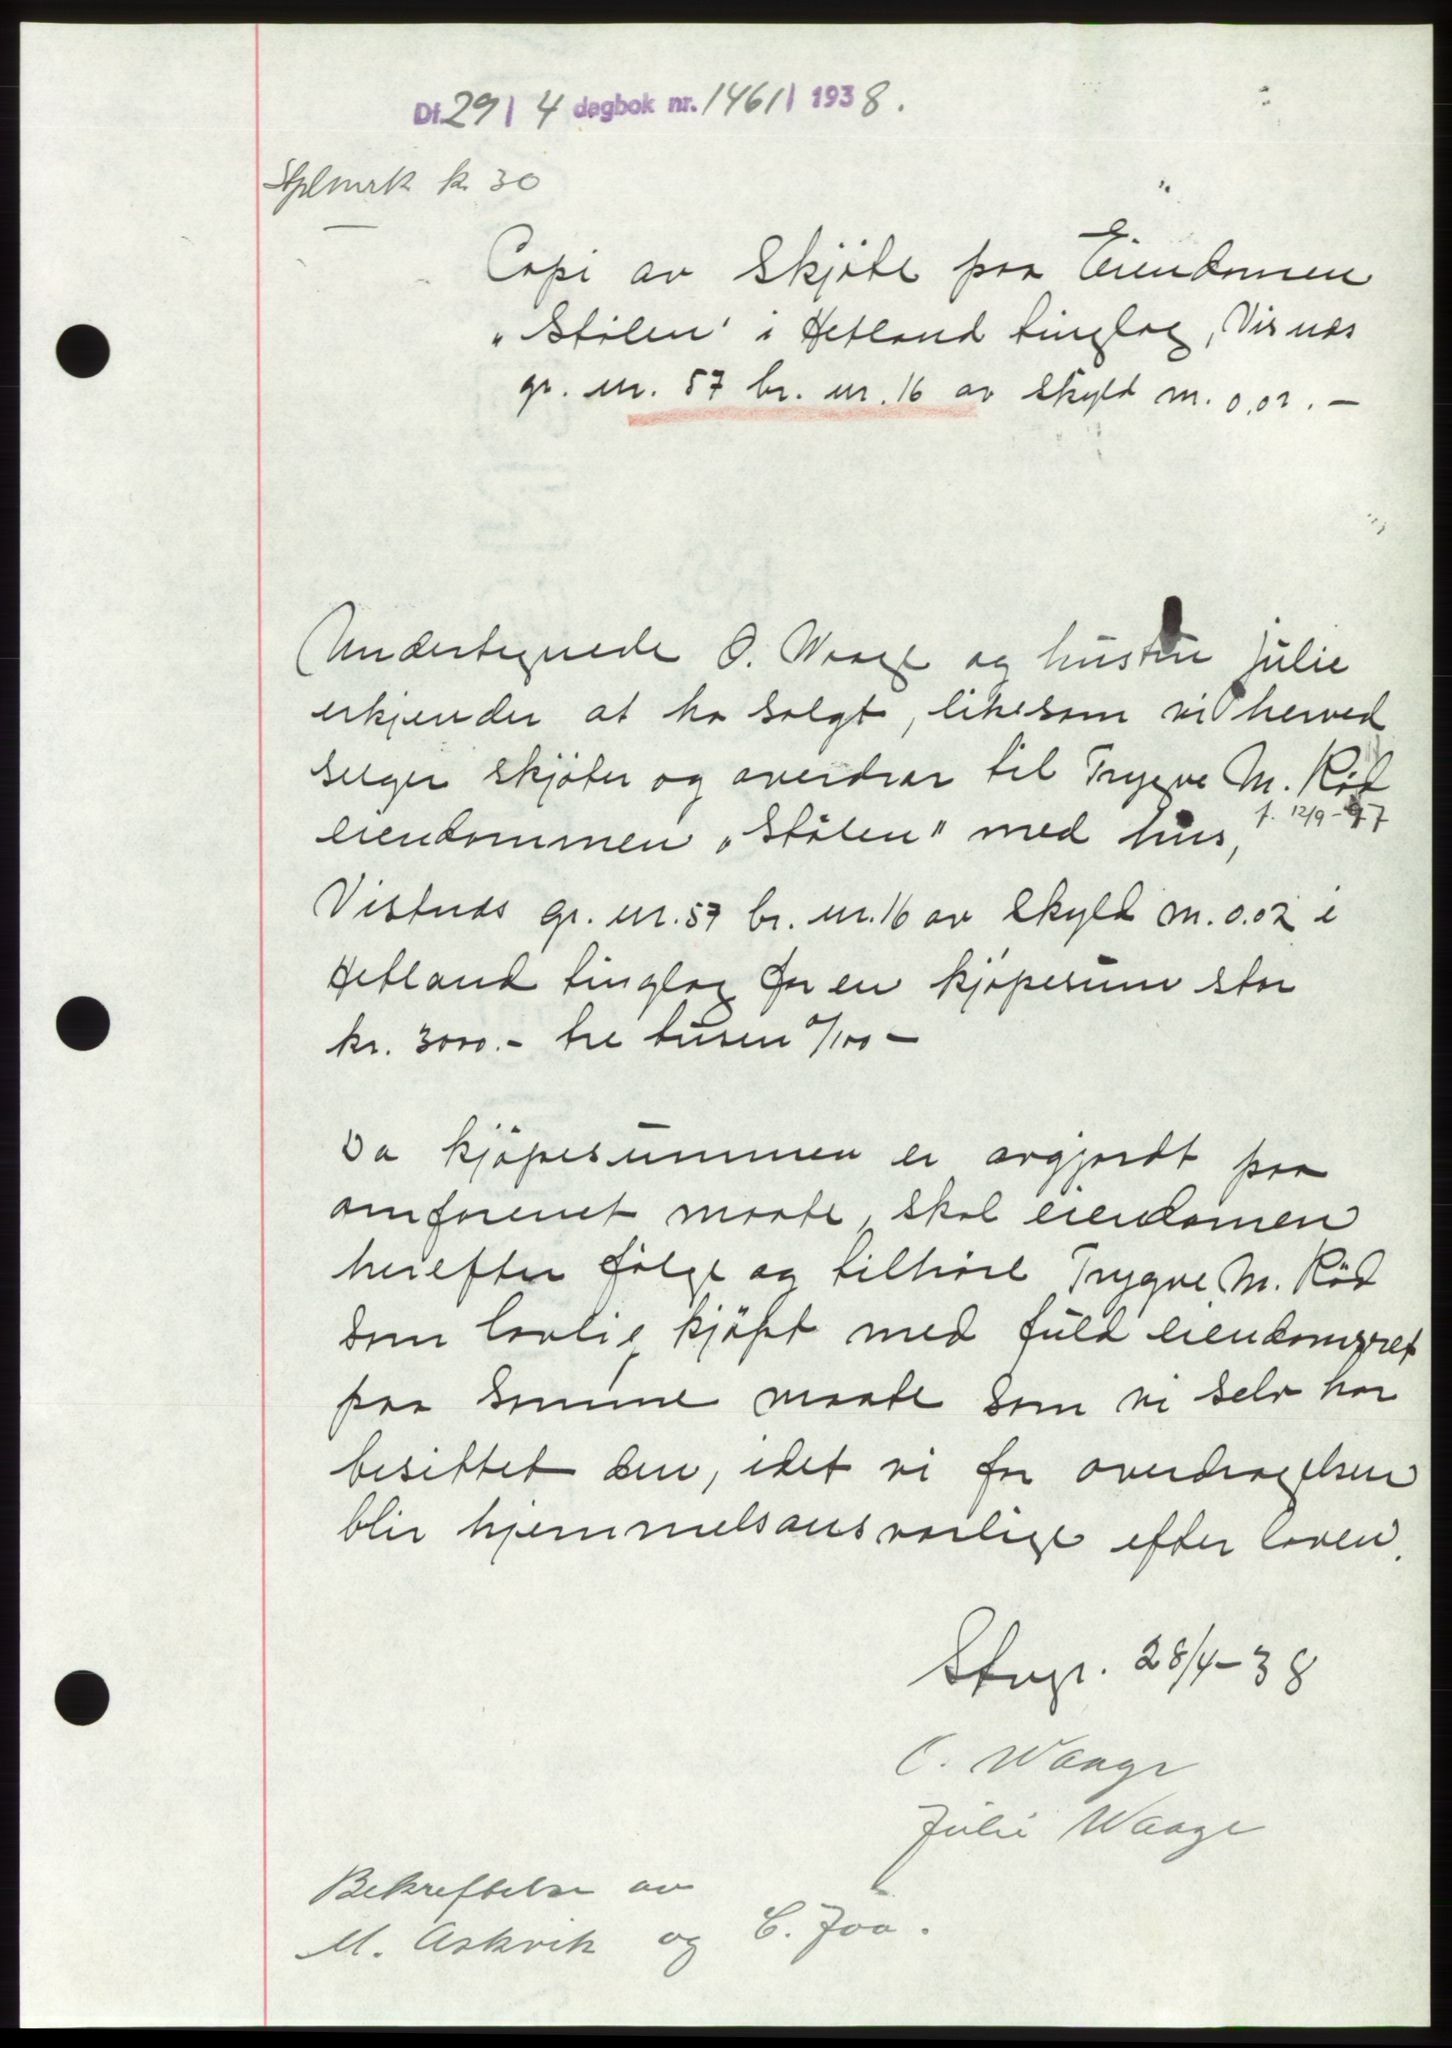 Df. 29 / 4 dagbok nr. 1461 / 1938.
Stplmrk kr. 30
Copi av Skjöte paa Eiendomen
„Stölen" i Hetland tinglag, Visnæs
gr. nr. 57 br. nr. 16 av skyld m. 0,02. –
Undertegnede O. Waage og hustru Julie
erkjender at ha solgt, likesom vi herved
selger skjöter og overdrar til Trygve M. Röd
f. 12/9-97
eiendommen „Stölen" med hus,
Vistnæs gr. nr. 57 br. nr. 16 av skyld m. 0.02 i
Hetland tinglag for en kjöpesum stor
kr. 3000.- tre tusen 0/100 –
Da kjöpesummen er avgjordt paa
omforenet maate, skal eiendomen
herefter fölge og tilhöre Trygve M. Röd
som lovlig kjöpt med fuld eiendomsret
paa samme maate som vi selv har
besittet den, idet vi for overdragelsen
blir hjemmelsansvarlige efter loven.
Stvgr. 28/4-38
O. Waage
Julie Waage
Bekreftelse av
M. Askvik og C. Joa.